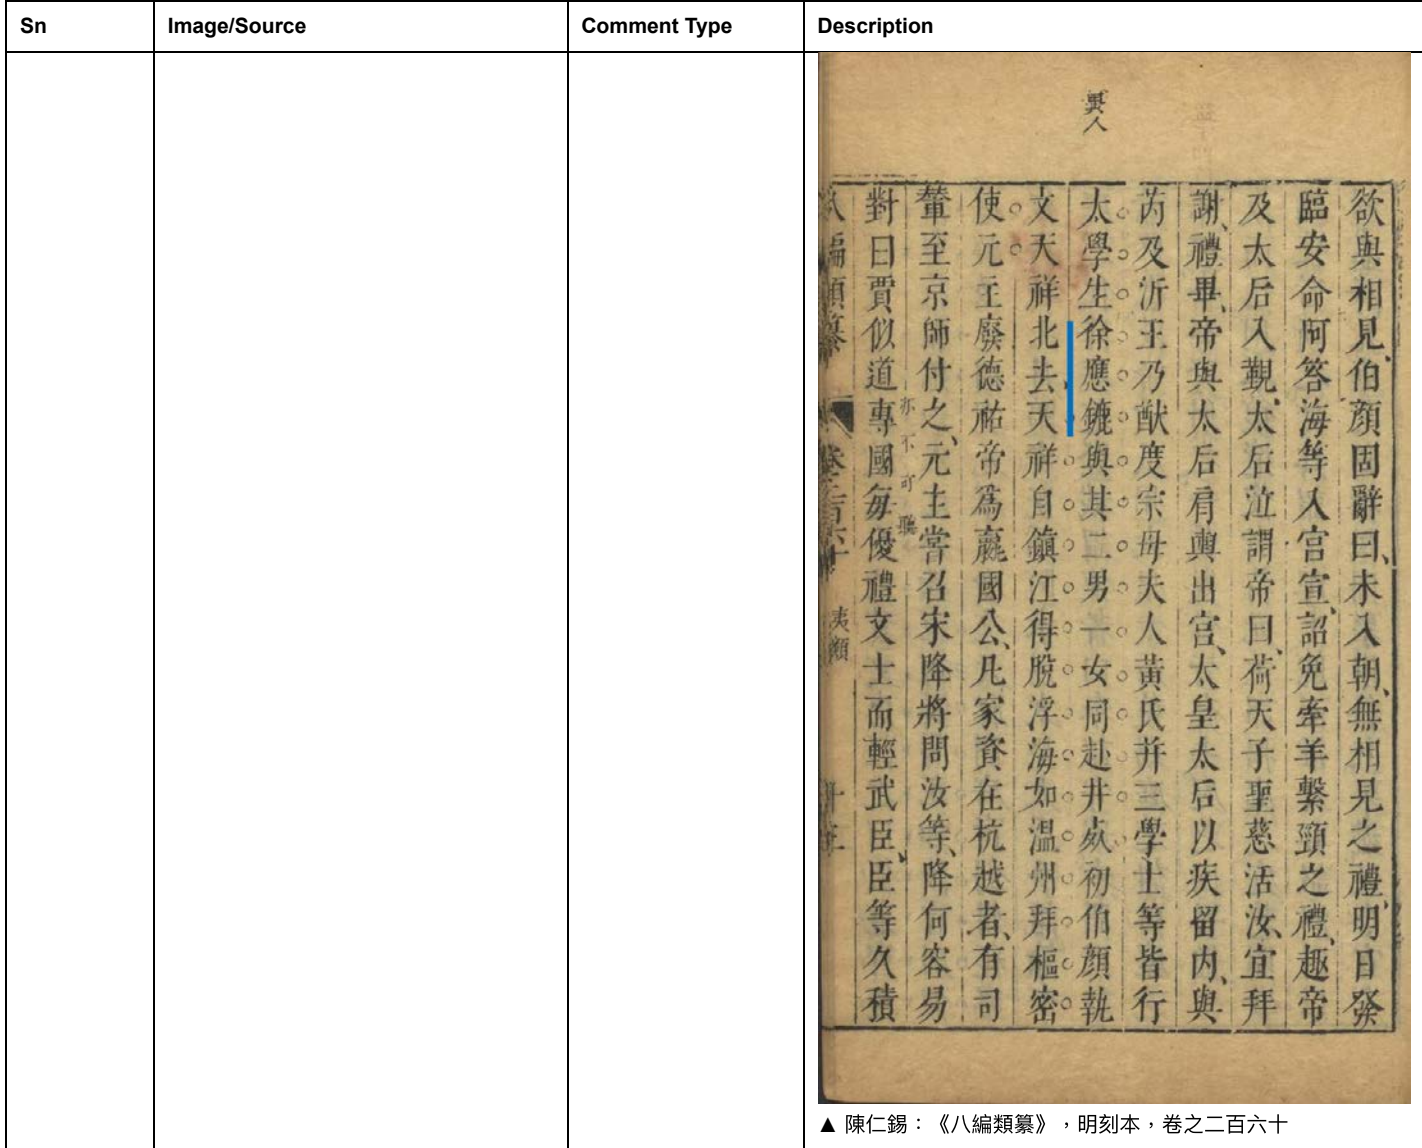 Sn
Image/Source
Comment Type
Description
異人
欲與相見伯顏固辭曰、未入朝、無相見之禮、明日發
臨安命阿答海等入宮宣詔免牽羊繫頸之禮、趣帝
及太后入覲、太后泣謂帝曰、荷天子聖慈活汝、宜拜
謝、禮畢、帝與太后肩輿出宮、太皇太后以疾留内、與
芮及沂王乃猷度宗母夫人黃氏并三學士等皆行
太學生徐應鑣與其二男一女同赴井死初伯顏執
文天祥北去天祥自鎮江得脫浮海如溫州拜樞密
使元主廢德祐帝為瀛國公、凡家資在杭越者、有司
輦至京師付之、元主嘗召宋降將問汝等、降何容易
亦不可聽
對曰賈似道專國每優禮文士而輕武臣、臣等久積
八編類纂
卷二百六十
▲ 陳仁錫：《八編類纂》，明刻本，卷之二百六十